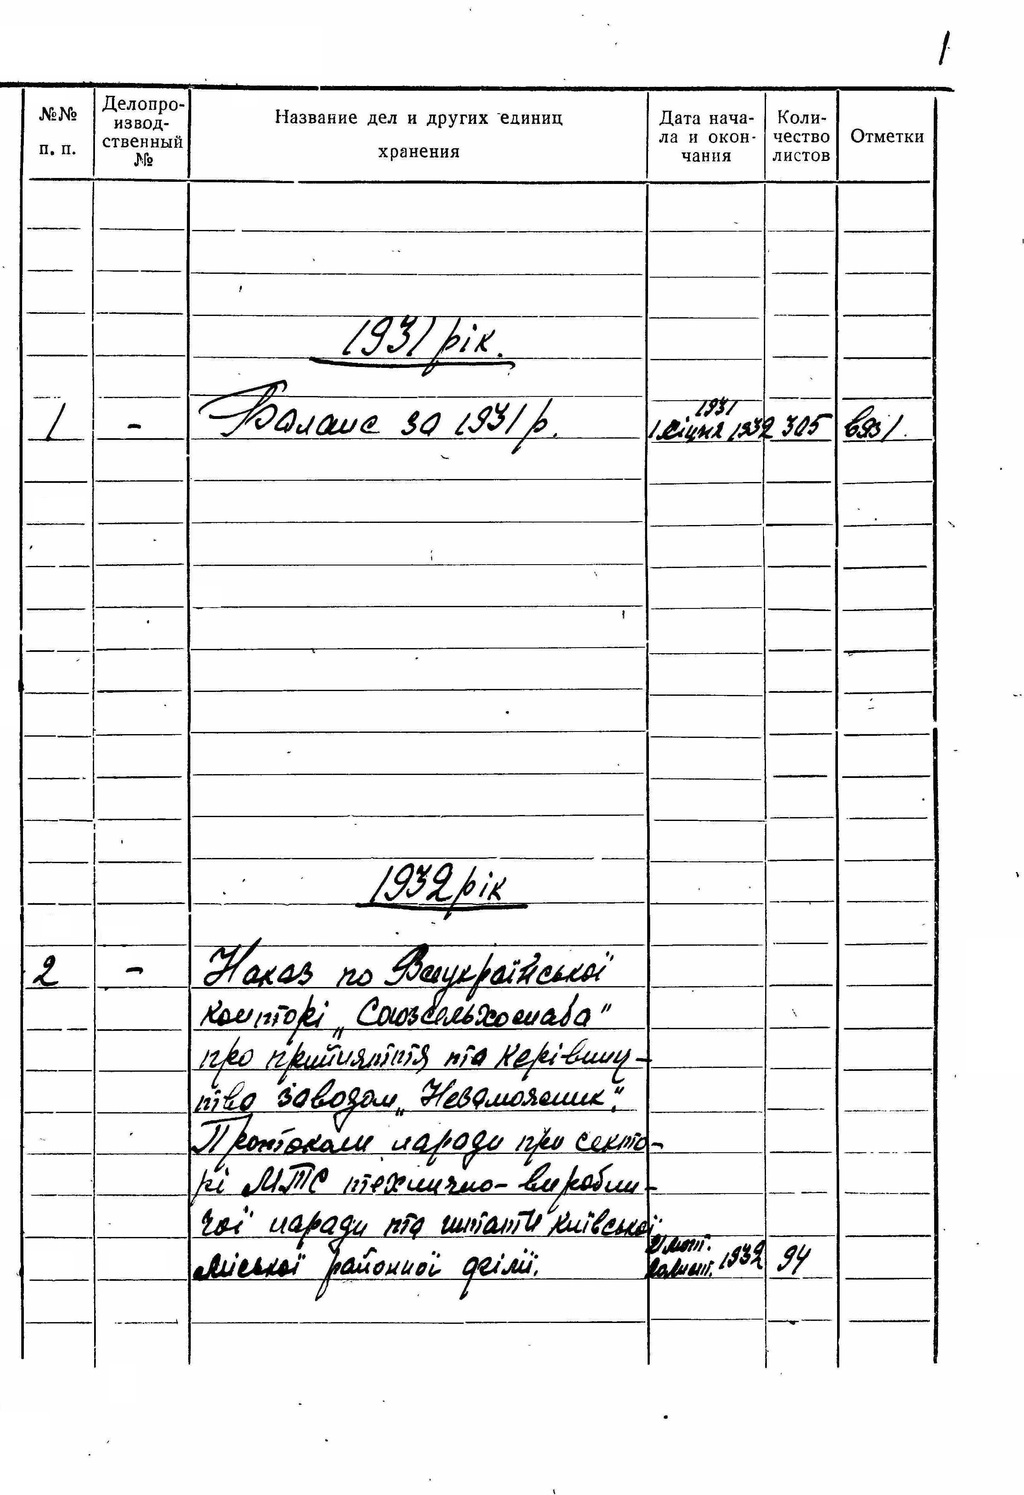 1
№№ п. п.
Делопроизводственный №
Название дел и других единиц хранения
Дата начала и окончания
Количество листов
Отметки
1931 рік.
1 - Баланс за 1931 р. 1931 1 січня 1932 305
1932 рік
2 - Наказ по Всеукраїнської
конторі „Союзсельхозснаба"
про прийняття та керівниц-
тво заводом „Незаможник".
Протоколи наради про секто-
рі МТС технично-виробни-
чої наради та штати Київської
Міської районної філії. 1932 94